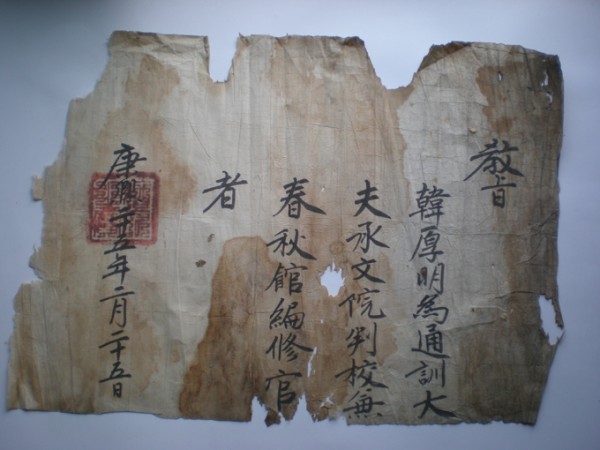 敎旨
韓厚明為通訓大
夫承文院判校兼
春秋館編修官
者
康熙二十五年二月二十五日